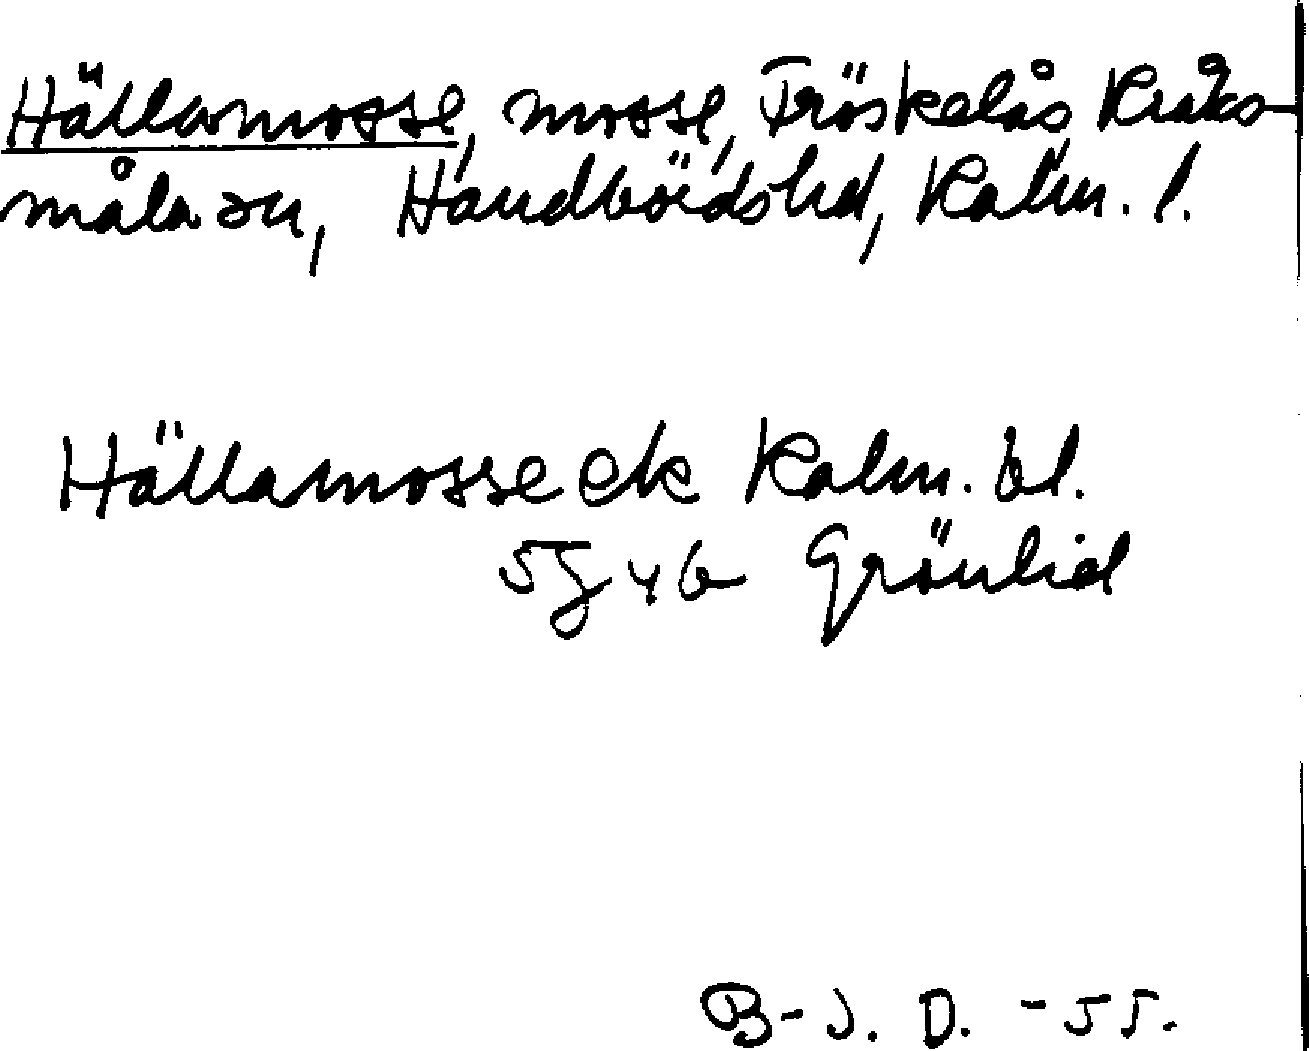 Hällamosse, mosse, Fröskelås Kråks-
måla sn, Handbördshd, Kalm. l.
Hällamosse ek Kalm. bl.
5G 4b Grönlid
B-J. D. -55.